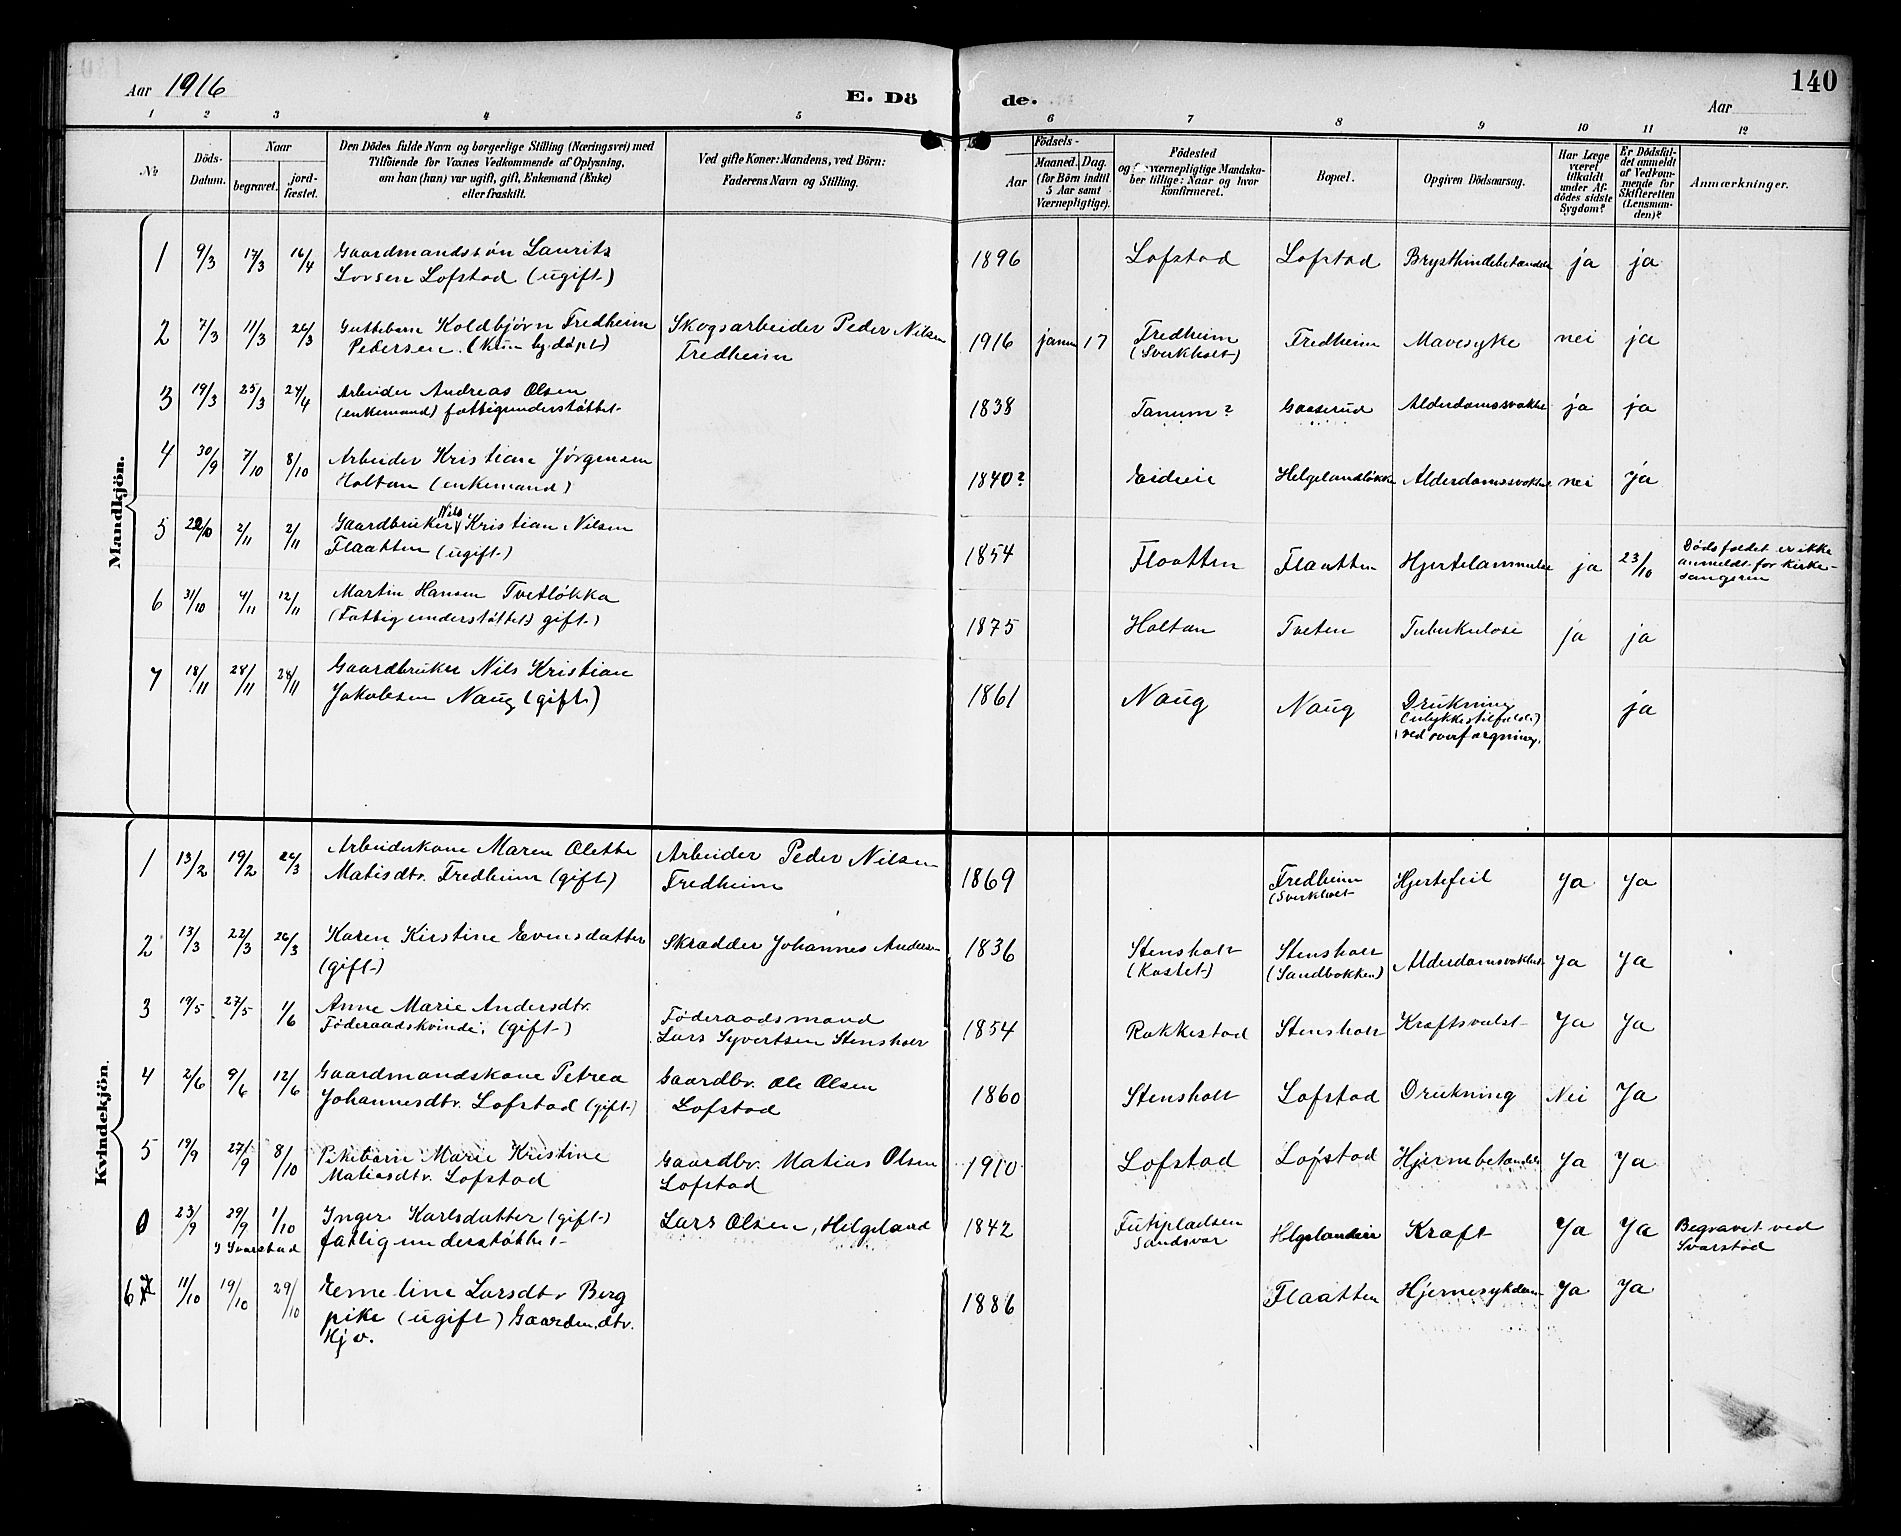 Aar 1916
E. Döde.
140
Aar
1 2 3 4 5 6 7 8 9 10 11 12
№
Döds-Datum.
Naar
begravet.
jordfæstet.
Den Dödes fulde Navn og borgerlige Stilling (Næringsvei) med
Tilföiende for Voxnes Vedkommende af Oplysning,
om han (hun) var ugift, gift, Enkemand (Enke)
eller fraskilt.
Ved gifte Koner: Mandens, ved Börn:
Faderens Navn og Stilling.
Födsels-
Aar
Maaned. Dag.
(for Börn indtil
5 Aar samt
Værnepligtige).
Födested
og for værnepligtige Mandskaber tillige: Naar og hvor
konfirmeret.
Bopæl.
Opgiven Dödsaarsag.
Har Læge
været
tilkaldt
under Afdödes sidste
Sygdom?
Er Dödsfaldet anmeldt
af Vedkommende for
Skifteretten
(Lensmanden)?
Anmærkninger.
Mandkjön.
1 9/3 17/3 16/4 Gaardmandssøn Laurits 1896 Lofstad Lofstad Brysthindebetændelse ja ja
Lofstad (ugift)
2 7/3 11/3 26/3 Guttebarn Koldbjørn Fredheim Skogsarbeider Peder Nilsen 1916 januar 17 Fredheim Fredheim Mavesyke nei ja
Pedersen. (kun hj.døpt) Fredheim (Sverkholt)
3 19/3 25/3 24/4 Arbeider Andreas Olsen 1838 Tanum? Gaaserud Alderdomssvakhet ja ja
(enkemand) fattigunderstøttet
4 30/9 7/10 8/10 Arbeider Kristian Jørgensen 1840? Eideie Helgelandløkke Alderdomssvakhet nei ja
Holtan (enkemand)
5 2/11 2/11 Gaardbruker Nils Kristian Nilsen 1854 Flaatten Flaatten Hjertelammelse ja 23/10 Dødsfaldet er ikke
Flaatten (ugift) anmeldt for kirkesangeren
6 31/10 4/11 12/11 Martin Hansen Tvetløkka 1875 Holtan Tveten Tuberkulose ja ja
(Fattigunderstøttet) gift
7 18/11 28/11 28/11 Gaardbruker Nils Kristian 1861 Naug Naug Drukning ja
Jakobsen Naug (gift) (ulykkestilfælde)
ved overfargning.
Kvindekjön.
1 13/2 19/2 26/3 Arbeiderkone Maren Olette Arbeider Peder Nilsen 1869 Fredheim Hjertefeil Ja Ja
Matisdtr. Fredheim (gift) Fredheim (Sverkholt
2 13/3 22/3 26/3 Karen Kirstine Evensdatter Skrædder Johannes Anders- 1836 Stensholt Stensholt Alderdomsvakhet Ja Ja
(gift) (Kastet) (Sandbakken)
3 19/5 27/5 1/6 Anne Marie Andersdtr. Føderaadsmand 1854 Rakkestad Stensholt Kræftsvulst Ja Ja
Føderaadskvinde. (gift) Lars Syvertsen Stensholt
4 2/6 9/6 12/6 Gaardmandskone Petrea Gaardbr. Ole Olsen 1860 Stensholt Lofstad Drukning Nei Ja
Johannesdtr. Lofstad (gift) Lofstad
5 19/9 27/9 8/10 Pikebarn Marie Kristine Gaardbr. Matias Olsen 1910 Lofstad Lofstad Hjernebetændelse Ja Ja
Matiasdtr. Lofstad Lofstad
0 23/9 29/9 1/10 Inger Karlsdatter (gift) Lars Olsen, Helgeland 1842 Sandsvær Helgelandeie Kræft Ja Ja Begravet ved
I Svarstad fattigunderstøttet Svarstad
6 11/10 19/10 29/10 Emeline Larsdtr Berg 1886 Flaatten Hjernesykdom Ja Ja
pike (ugift) Gaardm.dtr.